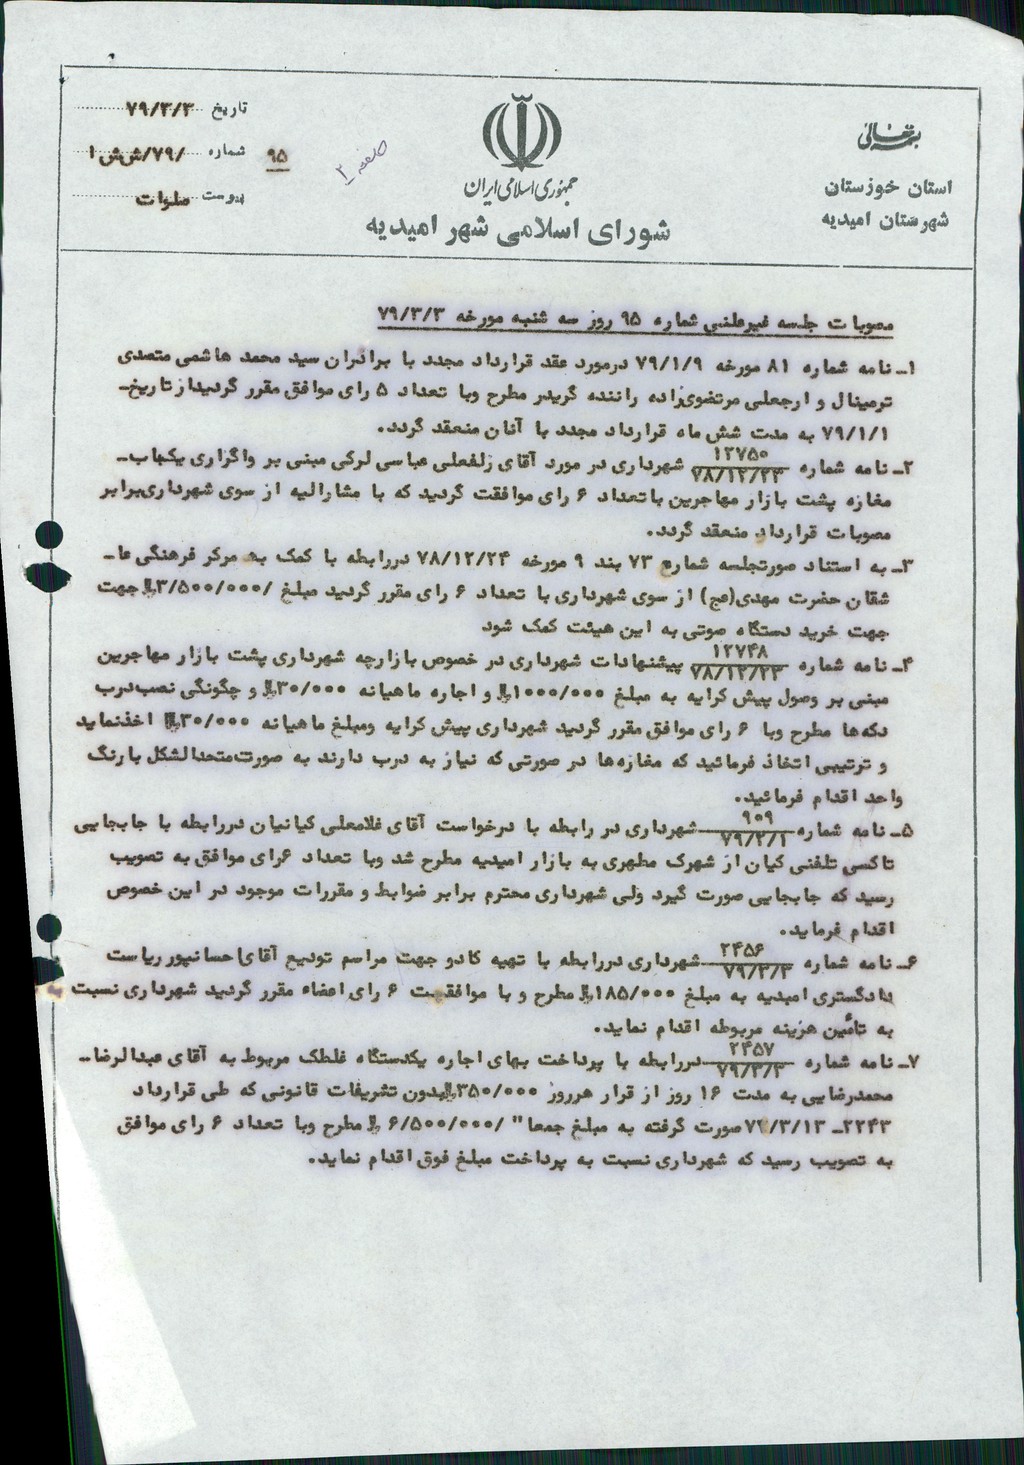 بسمه تعالی
استان خوزستان
شهرستان امیدیه
جمهوری اسلامی ایران
شورای اسلامی شهر امیدیه
صفحه ۲
تاریخ ۷۹/۳/۳
شماره /۷۹/ش ش ا ۹۵
پیوست صلوات
مصوبات جلسه غیرعلنی شماره ۹۵ روز سه شنبه مورخه ۷۹/۳/۳
۱ـ نامه شماره ۸۱ مورخه ۷۹/۱/۹ درمورد عقد قرارداد مجدد با برادران سید محمد هاشمی متصدی
ترمینال و ارجعلی مرتضوی‌زاده راننده گریدر مطرح وبا تعداد ۵ رای موافق مقرر گردیداز تاریخ‌ـ
۷۹/۱/۱ به مدت شش ماه قرارداد مجدد با آنان منعقد گردد.
۲ـ نامه شماره ۱۲۷۵۰ ۷۸/۱۲/۲۳ شهرداری در مورد آقای زلفعلی عباسی لرکی مبنی بر واگزاری یکباب‌ـ
مغازه پشت بازار مهاجرین باتعداد ۶ رای موافقت گردید که با مشارالیه از سوی شهرداری‌برابر
مصوبات قرارداد منعقد گردد.
۳ـ به استناد صورتجلسه شماره ۷۳ بند ۹ مورخه ۷۸/۱۲/۲۴ دررابطه با کمک به مرکز فرهنگی عاـ
شقان حضرت مهدی(عج) از سوی شهرداری با تعداد ۶ رای مقرر گردید مبلغ /۳/۵۰۰/۰۰۰ریال جهت
جهت خرید دستگاه صوتی به این هیئت کمک شود
۴ـ نامه شماره ۱۲۷۴۸ ۷۸/۱۲/۲۳ پیشنهادات شهرداری در خصوص بازارچه شهرداری پشت بازار مهاجرین
مبنی بر وصول پیش کرایه به مبلغ ۱۰۰۰/۰۰۰ریال و اجاره ماهیانه ۳۰/۰۰۰ریال و چگونگی نصب‌درب
دکه‌ها مطرح وبا ۶ رای موافق مقرر گردید شهرداری پیش کرایه ومبلغ ماهیانه ۳۰/۰۰۰ریال اخذنماید
و ترتیبی اتخاذ فرمائید که مغازه‌ها در صورتی که نیاز به درب دارند به صورت‌متحدالشکل بارنگ
واحد اقدام فرمائید.
۵ـ نامه شماره ۹۰۹ ۷۹/۲/۱ شهرداری در رابطه با درخواست آقای غلامعلی کیانیان دررابطه با جابجایی
تاکسی تلفنی کیان از شهرک مطهری به بازار امیدیه مطرح شد وبا تعداد ۶رای موافق به تصویب
رسید که جابجایی صورت گیرد ولی شهرداری محترم برابر ضوابط و مقررات موجود در این خصوص
اقدام فرماید.
۶ـ نامه شماره ۲۴۵۶ ۷۹/۳/۳ شهرداری دررابطه با تهیه کادو جهت مراسم تودیع آقای‌احسانپور ریاست
دادگستری امیدیه به مبلغ ۱۸۵/۰۰۰ریال مطرح و با موافقت ۶ رای اعضاء مقرر گردید شهرداری نسبت به
به تأمین هزینه مربوطه اقدام نماید.
۷ـ نامه شماره ۲۴۵۷ ۷۹/۳/۳ دررابطه با پرداخت بهای اجاره یکدستگاه غلطک مربوط به آقای عبدالرضاـ
محمدرضایی به مدت ۱۶ روز از قرار هرروز ۳۵۰/۰۰۰ریال بدون تشریفات قانونی که طی قرارداد
۲۲۴۳ـ ۷۲/۳/۱۳ صورت گرفته به مبلغ جمعا" /۶/۵۰۰/۰۰۰ ریال مطرح وبا تعداد ۶ رای موافق
به تصویب رسید که شهرداری نسبت به پرداخت مبلغ فوق اقدام نماید.